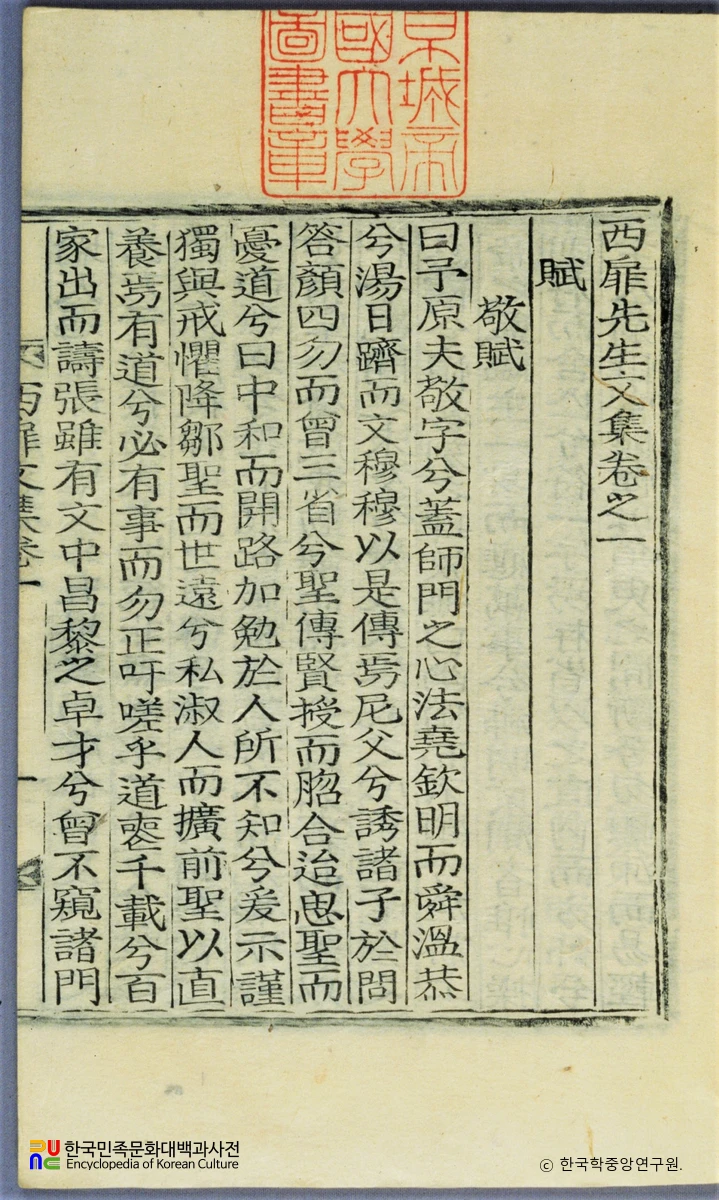 京城帝
國大學
圖書章
西扉先生文集卷之一
賦
敬賦
曰予原夫敬字兮蓋師門之心法堯欽明而舜溫恭
兮湯日躋而文穆穆以是傳焉尼父兮誘諸子於問
答顏四勿而曾三省兮聖傳賢授而脗合迨思聖而
憂道兮曰中和而開路加勉於人所不知兮爰示謹
獨與戒懼降鄒聖而世遠兮私淑人而擴前聖以直
養焉有道兮必有事而勿正吁嗟乎道喪千載兮百
家出而譸張雖有文中昌黎之卓才兮曾不窺諸門
西扉文集卷一
一
한국민족문화대백과사전
Encyclopedia of Korean Culture
© 한국학중앙연구원.